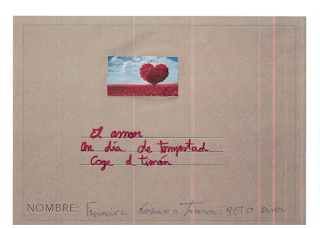 El amor
Un día de tempestad
Coge el timón
NOMBRE: Francisco